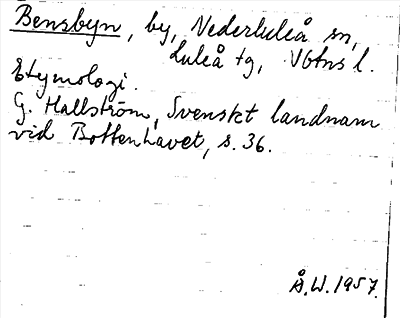 Bensbyn, by, Nederluleå sn,
Luleå tg, Vbtns l.
Etymologi.
G. Hallström, Svenskt landnam
vid Bottenhavet, s. 36.
Å.W. 1957.